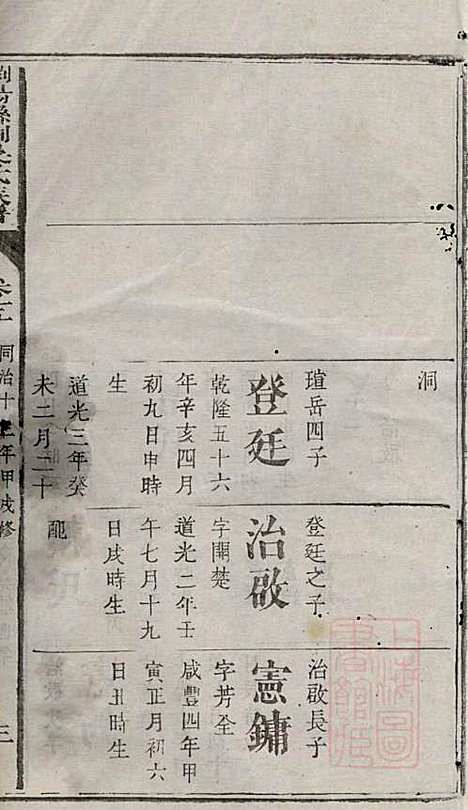 洞
瑄岳四子
登廷
乾隆五十六
年辛亥四月
初九日申時
生
道光三年癸
未二月二十
登廷之子
治啟
字開楚
道光二年壬
午七月十九
日戌時生
配
治啟長子
憲鏞
字芳全
咸豐四年甲
寅正月初六
日丑時生
同治十三年甲戌修
三
上海圖
書館藏